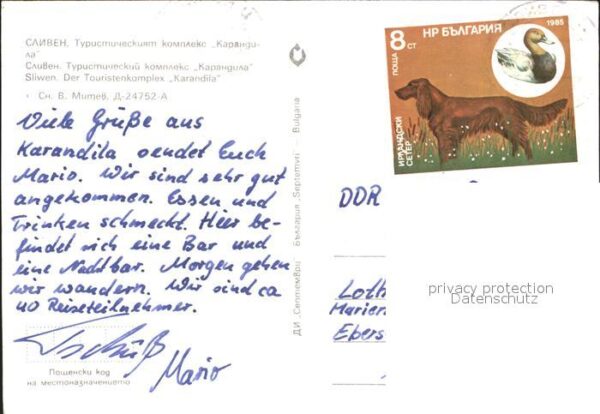 СЛИВЕН. Туристическият комплекс „Каранди-
ла"
Сливен. Туристический комплекс „Карандила"
Sliwen. Der Touristenkomplex „Karandila"
Сн. В. Митев. Д-24752-А
Viele Grüße aus
Karandila sendet Euch
Mario. Wir sind sehr gut
angekommen. Essen und
Trinken schmeckt. Hier be-
findet sich eine Bar und
eine Nachtbar. Morgen gehen
wir wandern. Wir sind ca
40 Reiseteilnehmer.
Tschüß
Mario
Пощенски код
на местоназначението
ДИ „Септември" България „Septemvri" — Bulgaria
НР БЪЛГАРИЯ
1985
8 СТ
ПОЩА
ИРЛАНДСКИ
СЕТЕР
DDR
Loth
Marien
Ebers
privacy protection
Datenschutz